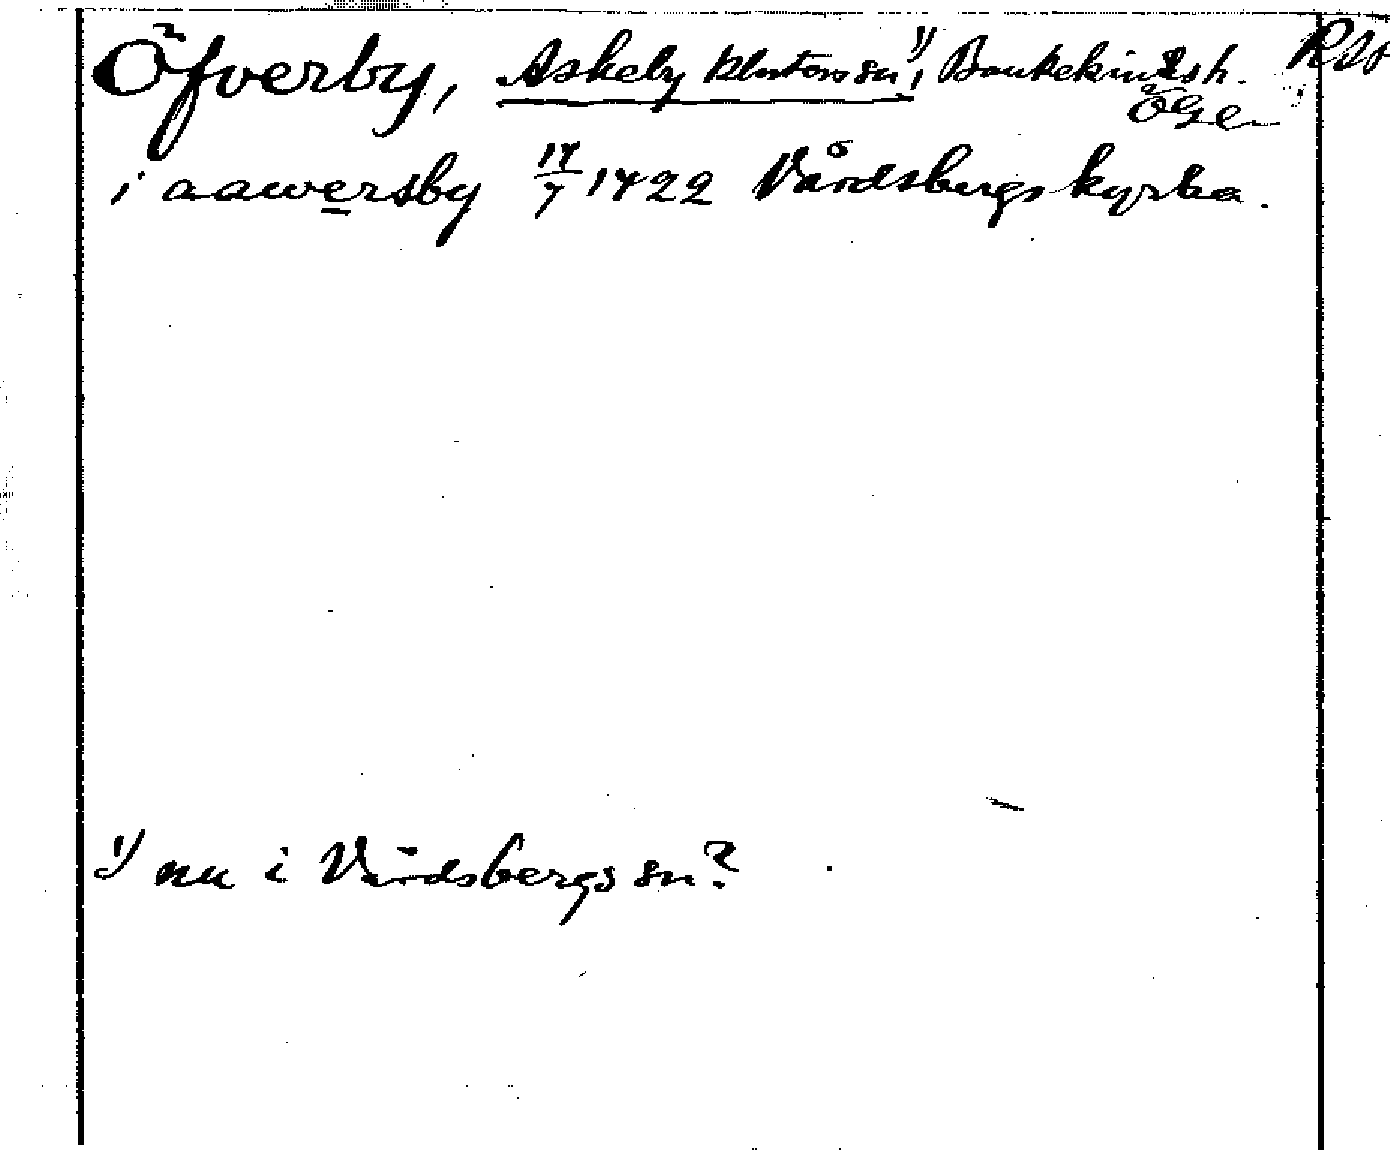 Öfverby, Askeby klosters sn¹⁾, Bankekinds h. Ög.
i aawersby 17/7 1422 Vårdsbergs kyrka.
¹⁾ nu i Vårdsbergs sn?